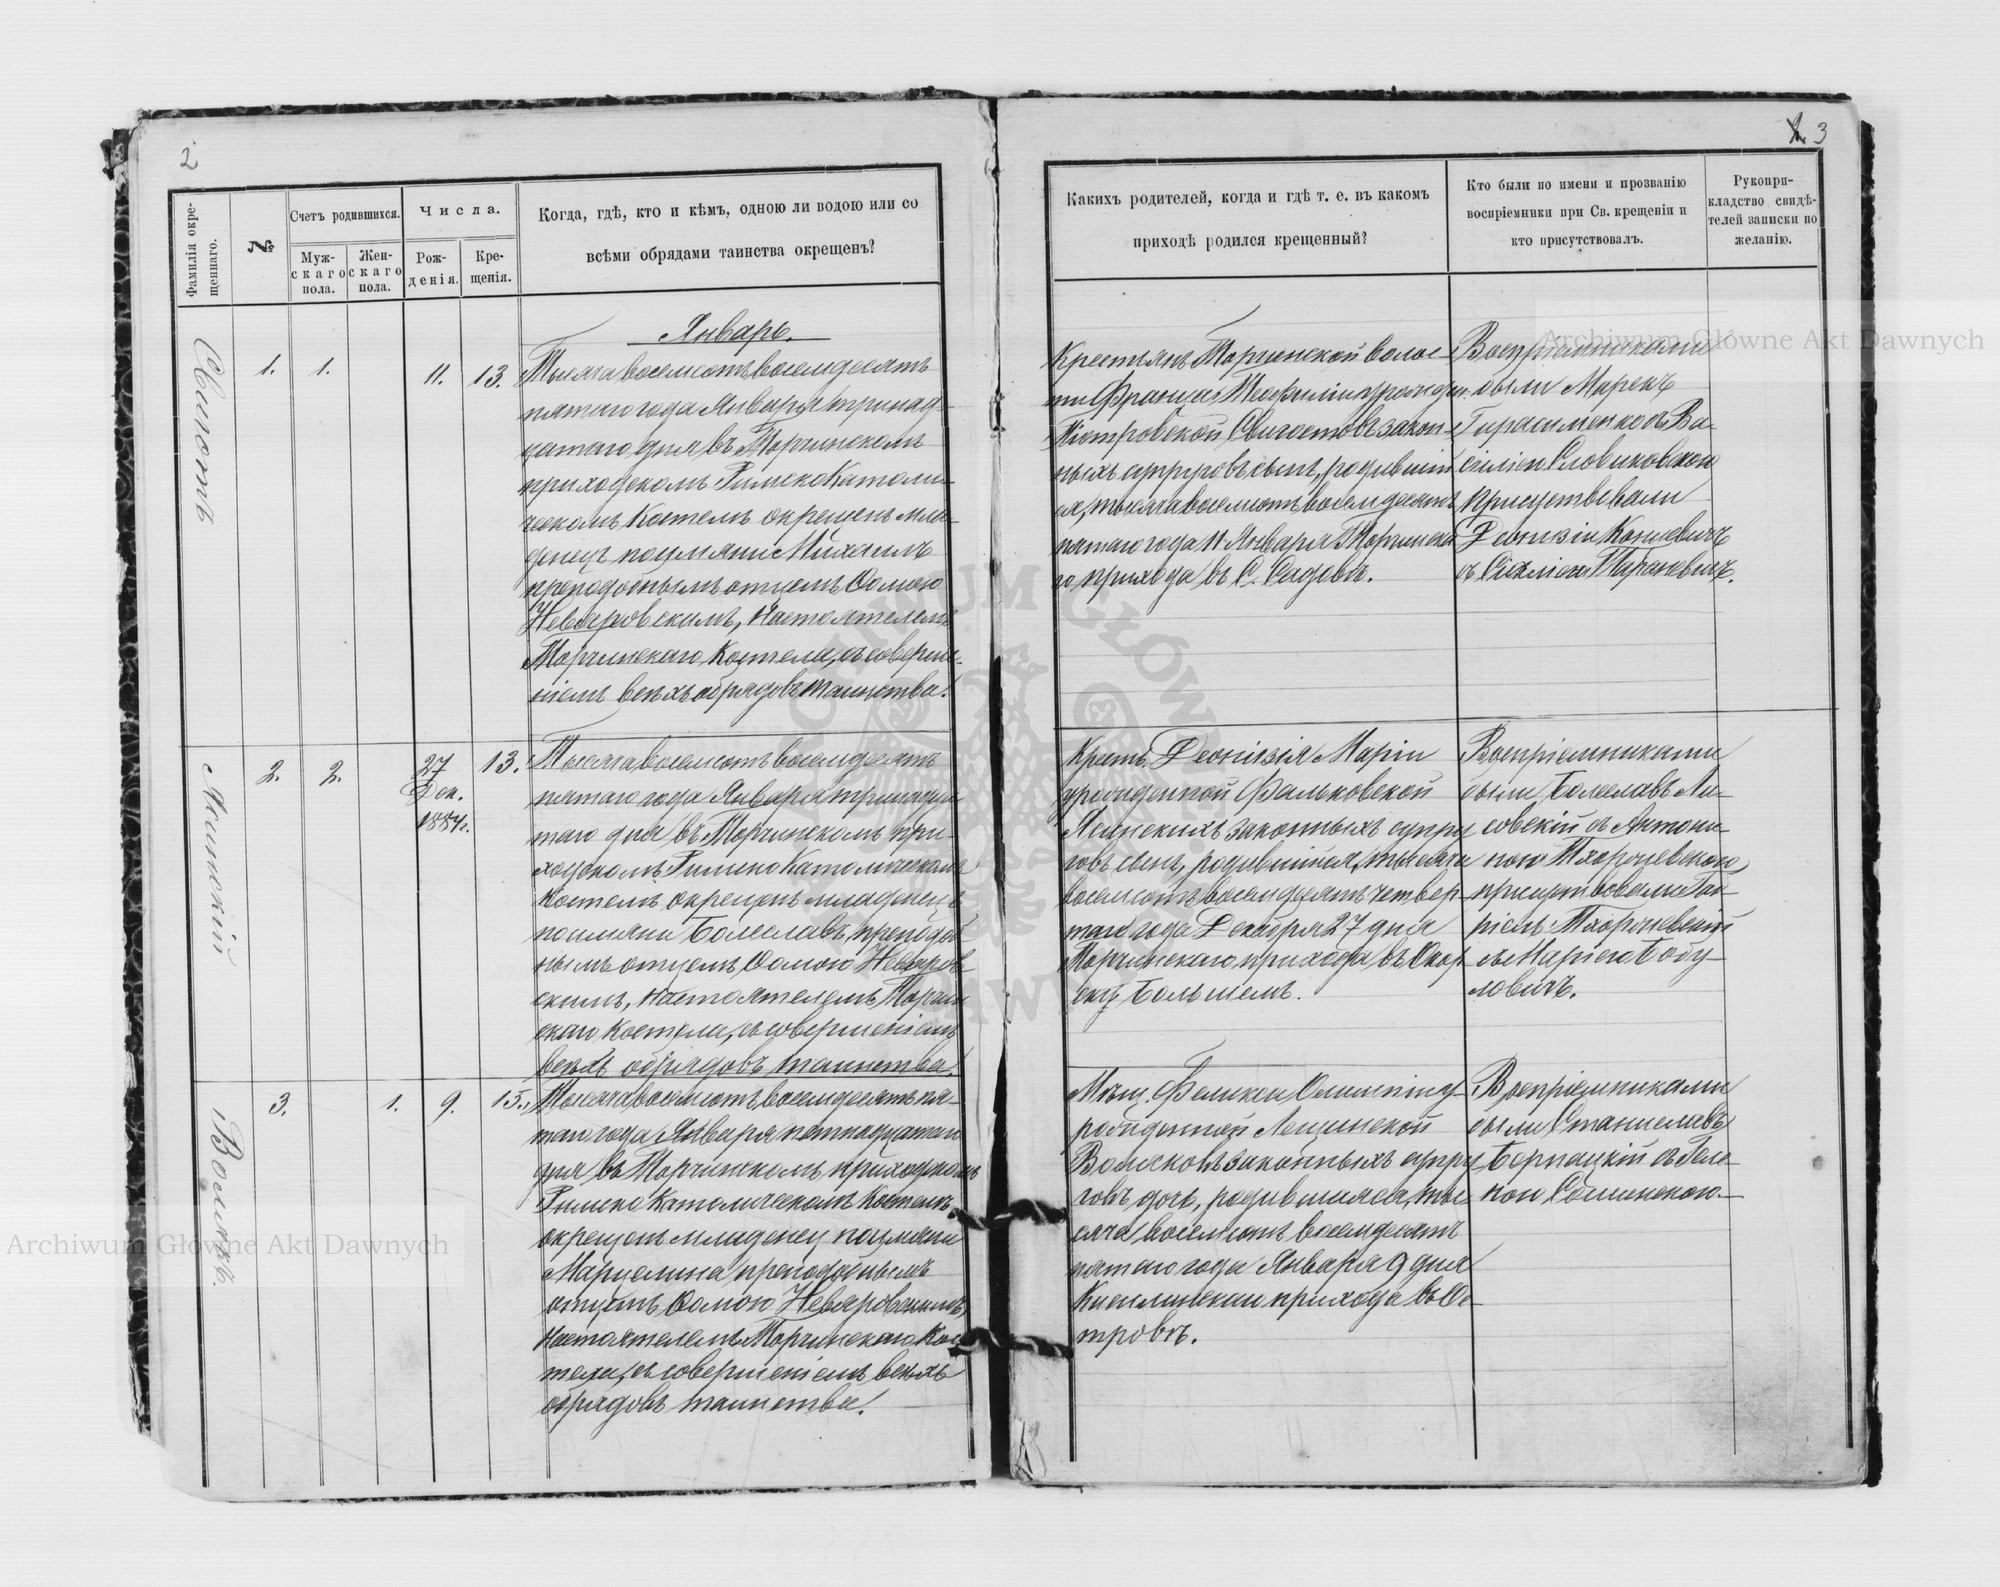 2
Фамилія окре-
щеннаго.
№
Счетъ родившихся.
Муж-
скаго
пола.
Жен-
скаго
пола.
Числа.
Рож-
денія.
Кре-
щенія.
Когда, гдѣ, кто и кѣмъ, одною ли водою или со
всѣми обрядами таинства окрещенъ?
Январь.
1.
1.
11.
13.
Тысяча восемсотъ восемдесятъ
пятаго года Января тринад-
цатаго дня въ Торчинскомъ
приходскомъ Римско Католи-
ческомъ Костелѣ окрещенъ мла-
денецъ по имяни Михаилъ
преподобнымъ отцемъ Ѳомою
Невяровскимъ, настоятелемъ
Торчинскаго Костела, съ соверше-
ніемъ всѣхъ обрядовъ таинства.
2.
2.
27
Дек.
1884г.
13.
Тысяча восемсотъ восемдесятъ
пятаго года Января тринадца-
таго дня въ Торчинскомъ при-
ходскомъ Римско Католическомъ
Костелѣ окрещенъ младенецъ
по имяни Болеславъ, преподоб
нымъ отцемъ Ѳомою Невяров
скимъ, настоятелемъ Торчин
скаго Костела, съ совершеніемъ
всѣхъ обрядовъ таинства.
Волякъ.
3.
1.
9.
15.
Тысяча восемсотъ восемдесятъ пя-
таго года Января пятнадцатаго
дня въ Торчинскомъ приходскомъ
Римско Католическомъ Костелѣ
окрещенъ младенец по имяни
Марцелина, преподобнымъ
отцемъ Ѳомою Невяровскимъ,
настоятелемъ Торчинскаго Кос
тела, съ совершеніемъ всѣхъ
обрядовъ таинства.
3
Какихъ родителей, когда и гдѣ т. е. въ какомъ
приходѣ родился крещенный?
Кто были по имени и прозванію
воспріемники при Св. крещеніи и
кто присутствовалъ.
Рукопри-
кладство свидѣ-
телей записки по
желанію.
Крестьянъ Торчинской волос-
ти Франца и Теофили урожден.
закон-
ныхъ супруговъ сынъ, родившій
ся, тысяча восемсотъ восемдесятъ
пятаго года 11 Января Торчинска
го прихода въ С. Садовѣ.
Воспріемниками
были Марекъ
съ Ва-
Словиковскою
присутствовали
Деонизій
съ
Крест. Деонизія и Маріи
урожденной Фальковской
законныхъ супру
говъ сынъ, родившійся, тысяча
восемсотъ восемдесятъ четвер-
таго года Декабря 27 дня
Торчинскаго прихода въ
Большемъ.
Воспріемниками
были Болеславъ Ли-
совскій съ Антони-
ною
присутствовали Га-
съ Маріею Богу-
ловичъ.
Мѣщ. Феликса и Олимпіи у-
рожденной Лещинской
Воляковъ законныхъ супру
говъ дочь, родившаяся, ты-
сяча восемсотъ восемдесятъ
пятаго года Января 9 дня
прихода въ Ос-
тровѣ.
Воспріемниками
были Станиславъ
съ Геле-
ною
Archiwum Główne Akt Dawnych
Archiwum Główne Akt Dawnych